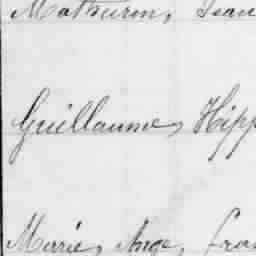 Mathurin, Jean
Guillaume, Hipp
Marie, Ange, fran